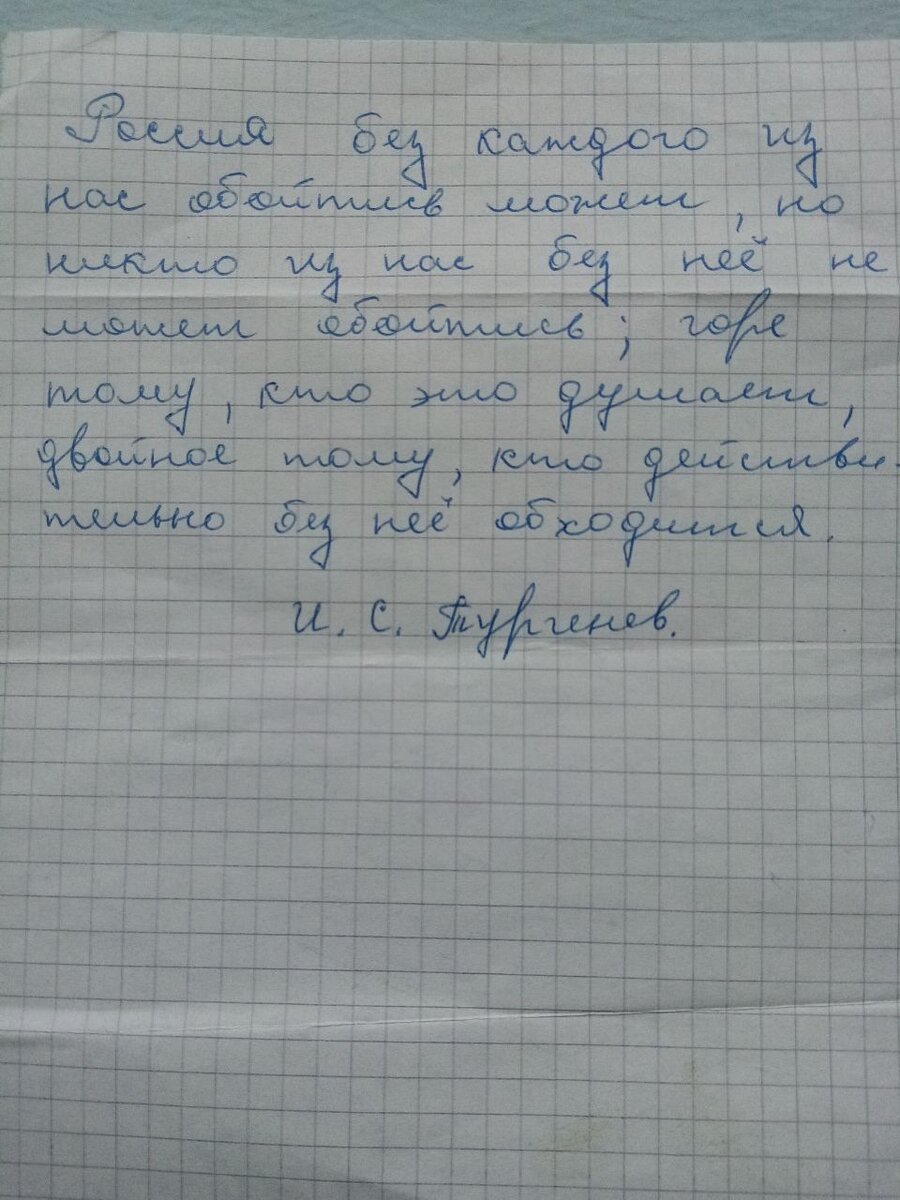 Россия без каждого из
нас обойтись может, но
никто из нас без неё не
может обойтись; горе
тому, кто это думает,
двойное тому, кто действи-
тельно без неё обходится.
И. С. Тургенев.